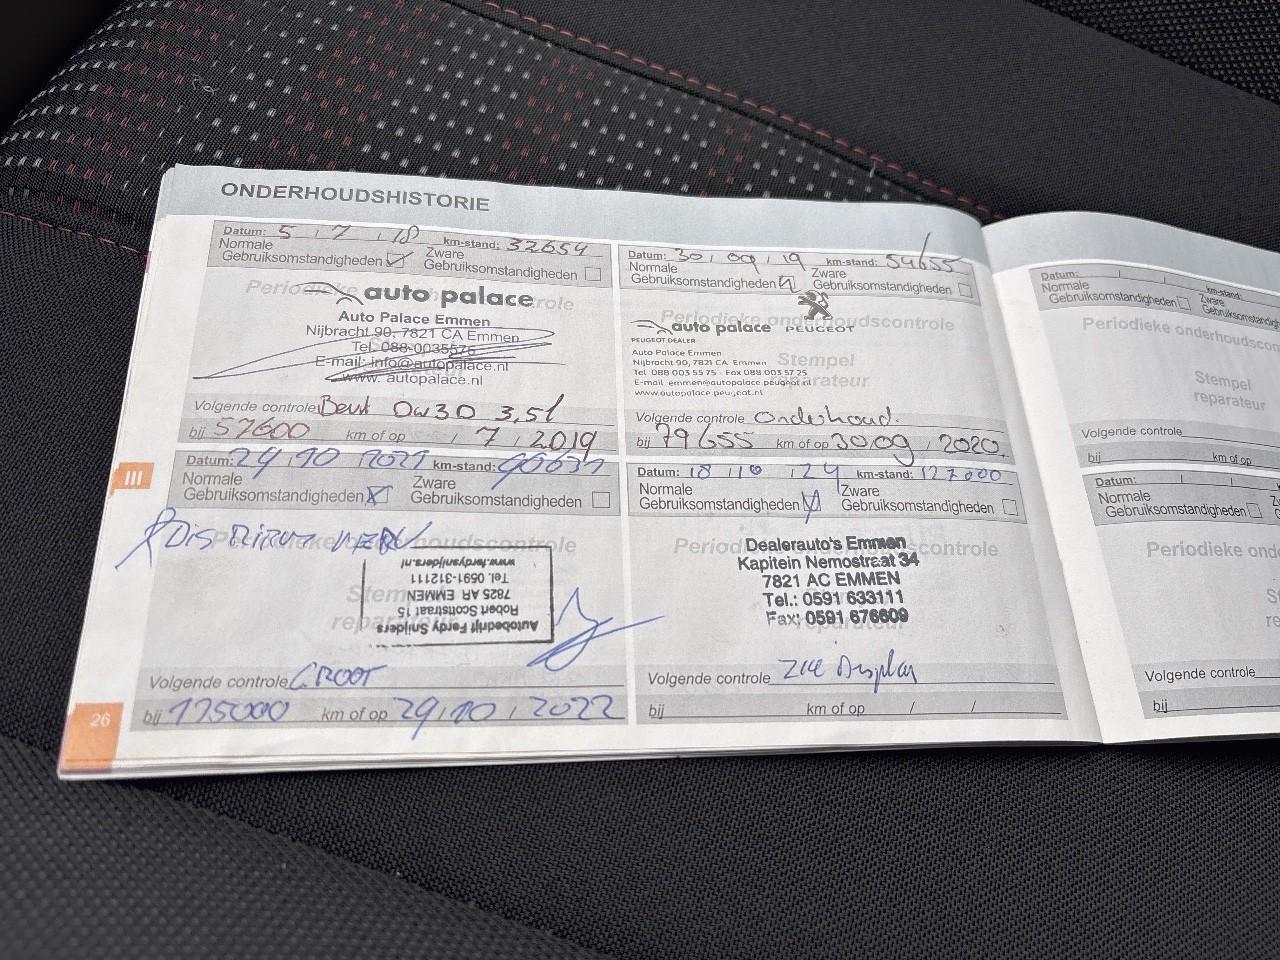 ONDERHOUDSHISTORIE
Datum: 5 / 7 / 18 km-stand: 32654
Normale Gebruiksomstandigheden
Zware Gebruiksomstandigheden
Periodieke onderhoudscontrole
auto palace
Auto Palace Emmen
Nijbracht 90, 7821 CA Emmen
Tel. 088-0035575
E-mail: info@autopalace.nl
www. autopalace.nl
Volgende controle 0w30 3,5l
bij 57600 km of op / 7 / 2019
Datum: 30 / 09 / 19 km-stand: 54655
Normale Gebruiksomstandigheden
Zware Gebruiksomstandigheden
Periodieke onderhoudscontrole
auto palace PEUGEOT
PEUGEOT DEALER
Stempel reparateur
Auto Palace Emmen
Nijbracht 90, 7821 CA Emmen
Tel 088 003 55 75 - Fax 088 003 57 25
E-mail emmen@autopalace.peugeot.nl
www.autopalace.peugeot.nl
Volgende controle Onderhoud.
bij 79655 km of op 30 09 / 2020
Datum: 29 / 10 / 2021 km-stand:
Normale Gebruiksomstandigheden
Zware Gebruiksomstandigheden
Periodieke onderhoudscontrole
Distributie
Stempel reparateur
Autobedrijf Ferdy Snijders
Robert Scottstraat 15
7825 AR EMMEN
Tel. 0591-312111
www.ferdysnijders.nl
Volgende controle GROOT
bij 115000 km of op 29 / 10 / 2022
Datum: 18 / 10 / 24 km-stand: 127000
Normale Gebruiksomstandigheden
Zware Gebruiksomstandigheden
Periodieke onderhoudscontrole
Dealerauto's Emmen
Kapitein Nemostraat 34
7821 AC EMMEN
Tel.: 0591 633111
Fax: 0591 676609
reparateur
Volgende controle zie Display
bij km of op / /
III
26
Datum: / km-stand:
Normale Gebruiksomstandigheden
Zware
Periodieke onderhoudscon
Stempel reparateur
Volgende controle
bij km of op
Datum: / /
Normale Gebruiksomstandigheden
Periodieke ond
Volgende controle
bij